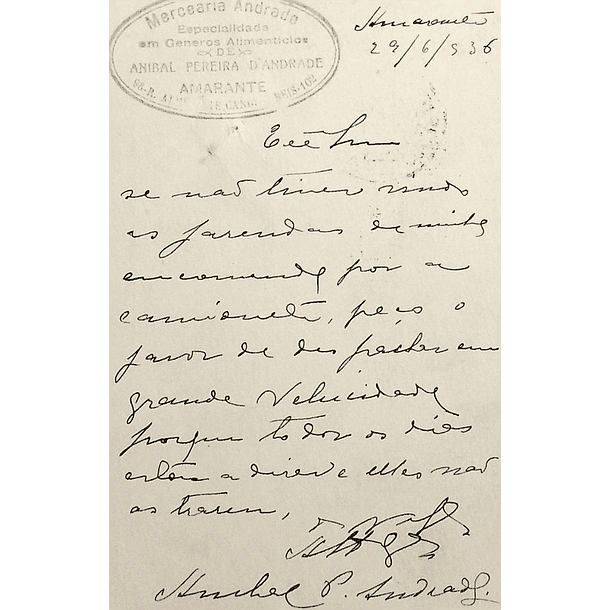 Mercearia Andrade
Especialidade
em Generos Alimenticios
DE
ANIBAL PEREIRA D'ANDRADE
AMARANTE
Amarante
29/6/936
se não tiver
as fazendas de minha
encomenda por a
camionete, peço o
favor de despachar em
grande Velucidade
porque todos os dias
estão a dizer e elles não
as trazem,
Anibal P. Andrade.